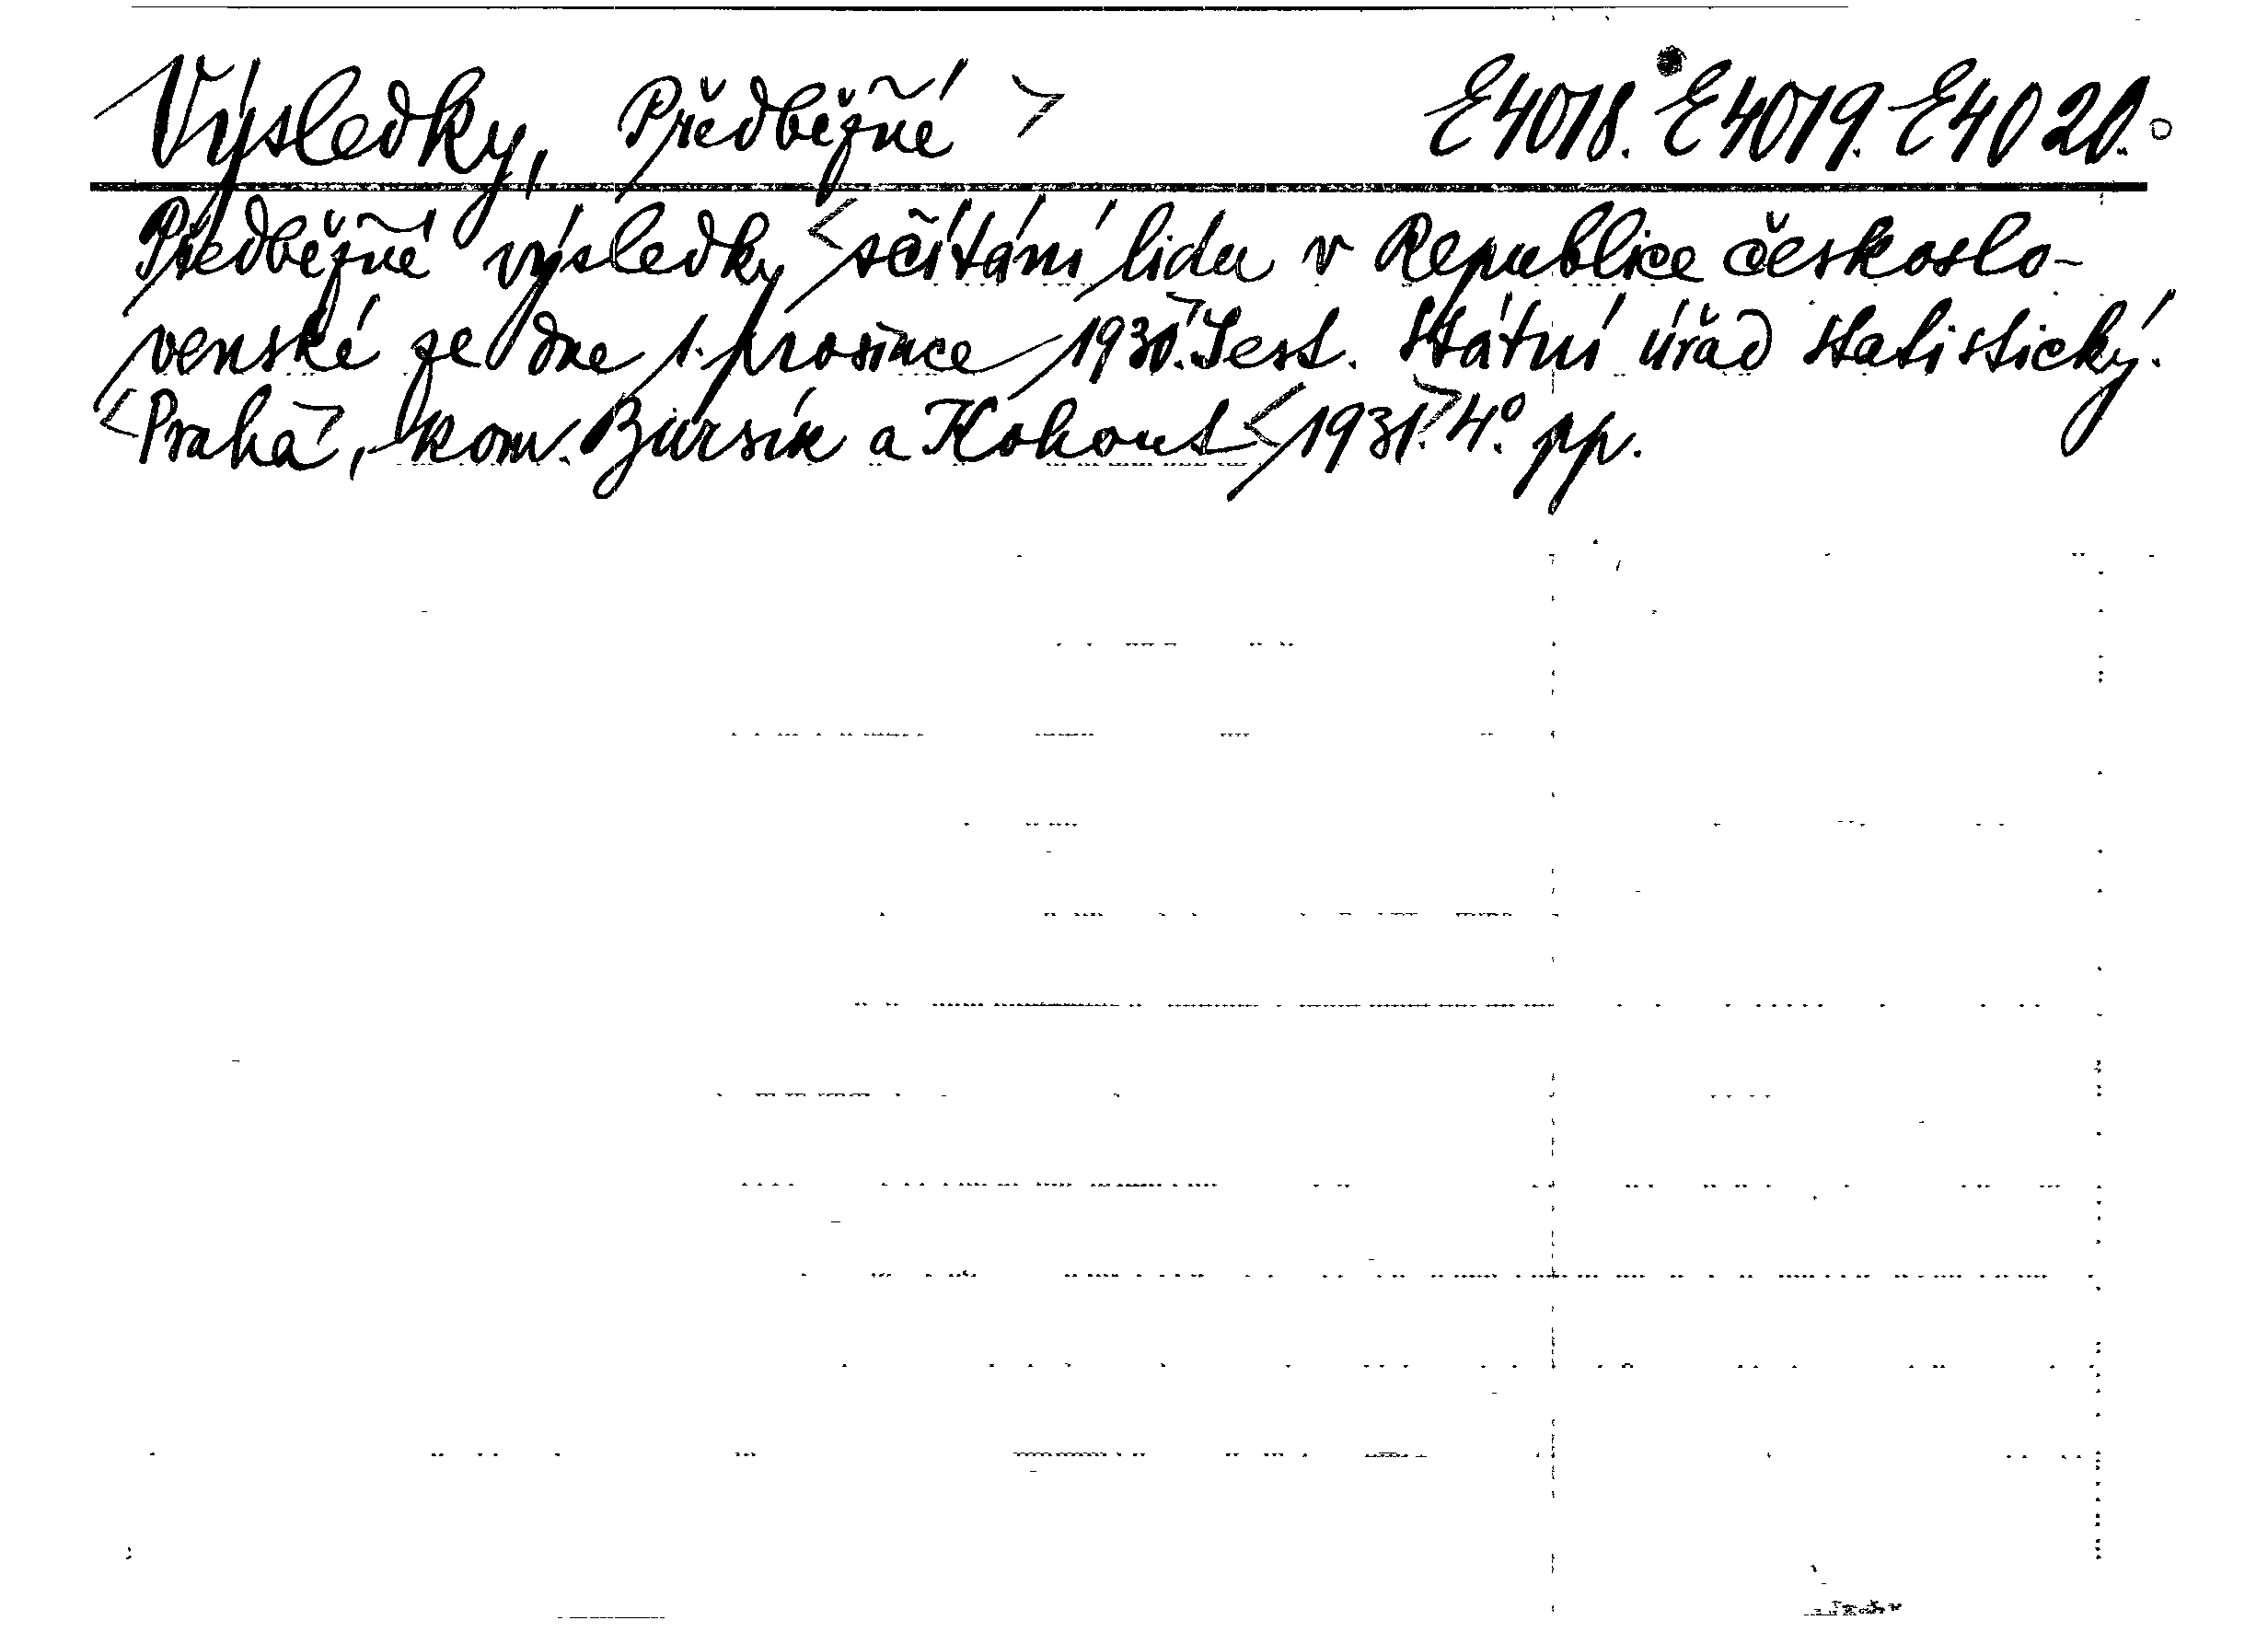 Výsledky, Předběžné > E4018. E4019. E4020.
Předběžné výsledky <sčítání lidu v Republice českoslo-
venské ze dne 1. prosince 1930.> Sest. Státní úřad statistický.
<Praha>, kom. Bursík a Kohout <1931.> 4º. pp.